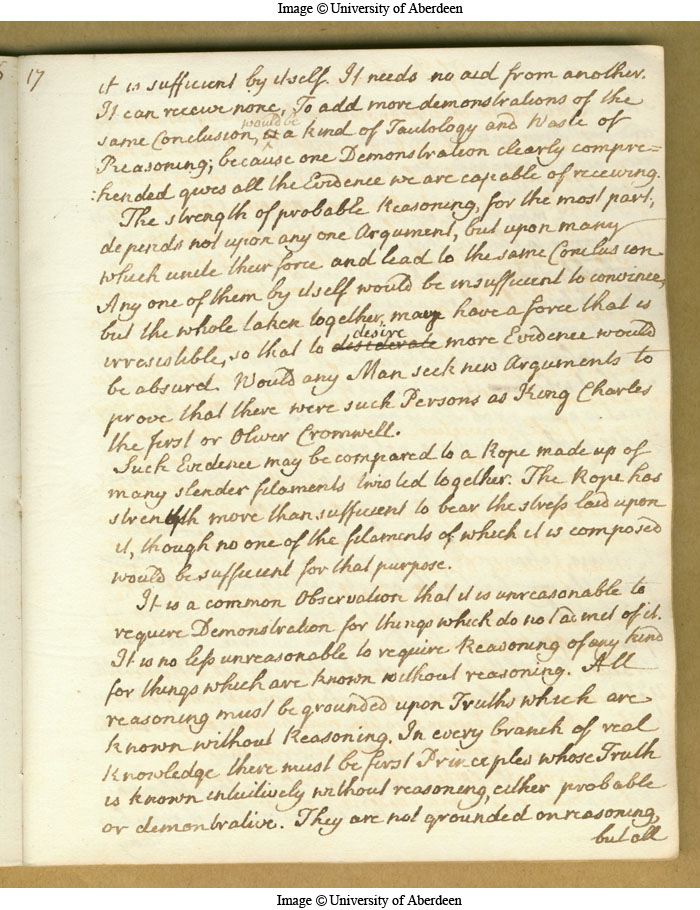 Image © University of Aberdeen
17
it is sufficient by itself. It needs no aid from another.
It can receive none. To add more demonstrations of the
would be
same Conclusion, is a kind of Tautology and Waste of
Reasoning; because one Demonstration clearly compre=
:hended gives all the Evidence we are capable of receiving.
The strength of probable Reasoning, for the most part,
depends not upon any one Argument, but upon many
which unite their force and lead to the same Conclusion
Any one of them by itself would be insufficient to convince,
but the whole taken together, may have a force that is
desire
irresistible, so that to desiderate more Evidence would
be absurd. Would any Man seek new Arguments to
prove that there were such Persons as King Charles
the first or Oliver Cromwell.
Such Evidence may be compared to a Rope made up of
many slender filaments twisted together. The Rope has
strength more than sufficient to bear the stress laid upon
it, though no one of the filaments of which it is composed
would be sufficient for that purpose.
It is a common Observation that it is unreasonable to
require Demonstration for things which do not admit of it.
It is no less unreasonable to require Reasoning of any kind
for things which are known without reasoning. All
reasoning must be grounded upon Truths which are
known without Reasoning. In every branch of real
Knowledge there must be first Principles whose Truth
is known intuitively without reasoning, either probable
or demontrative. They are not grounded on reasoning,
but all
Image © University of Aberdeen